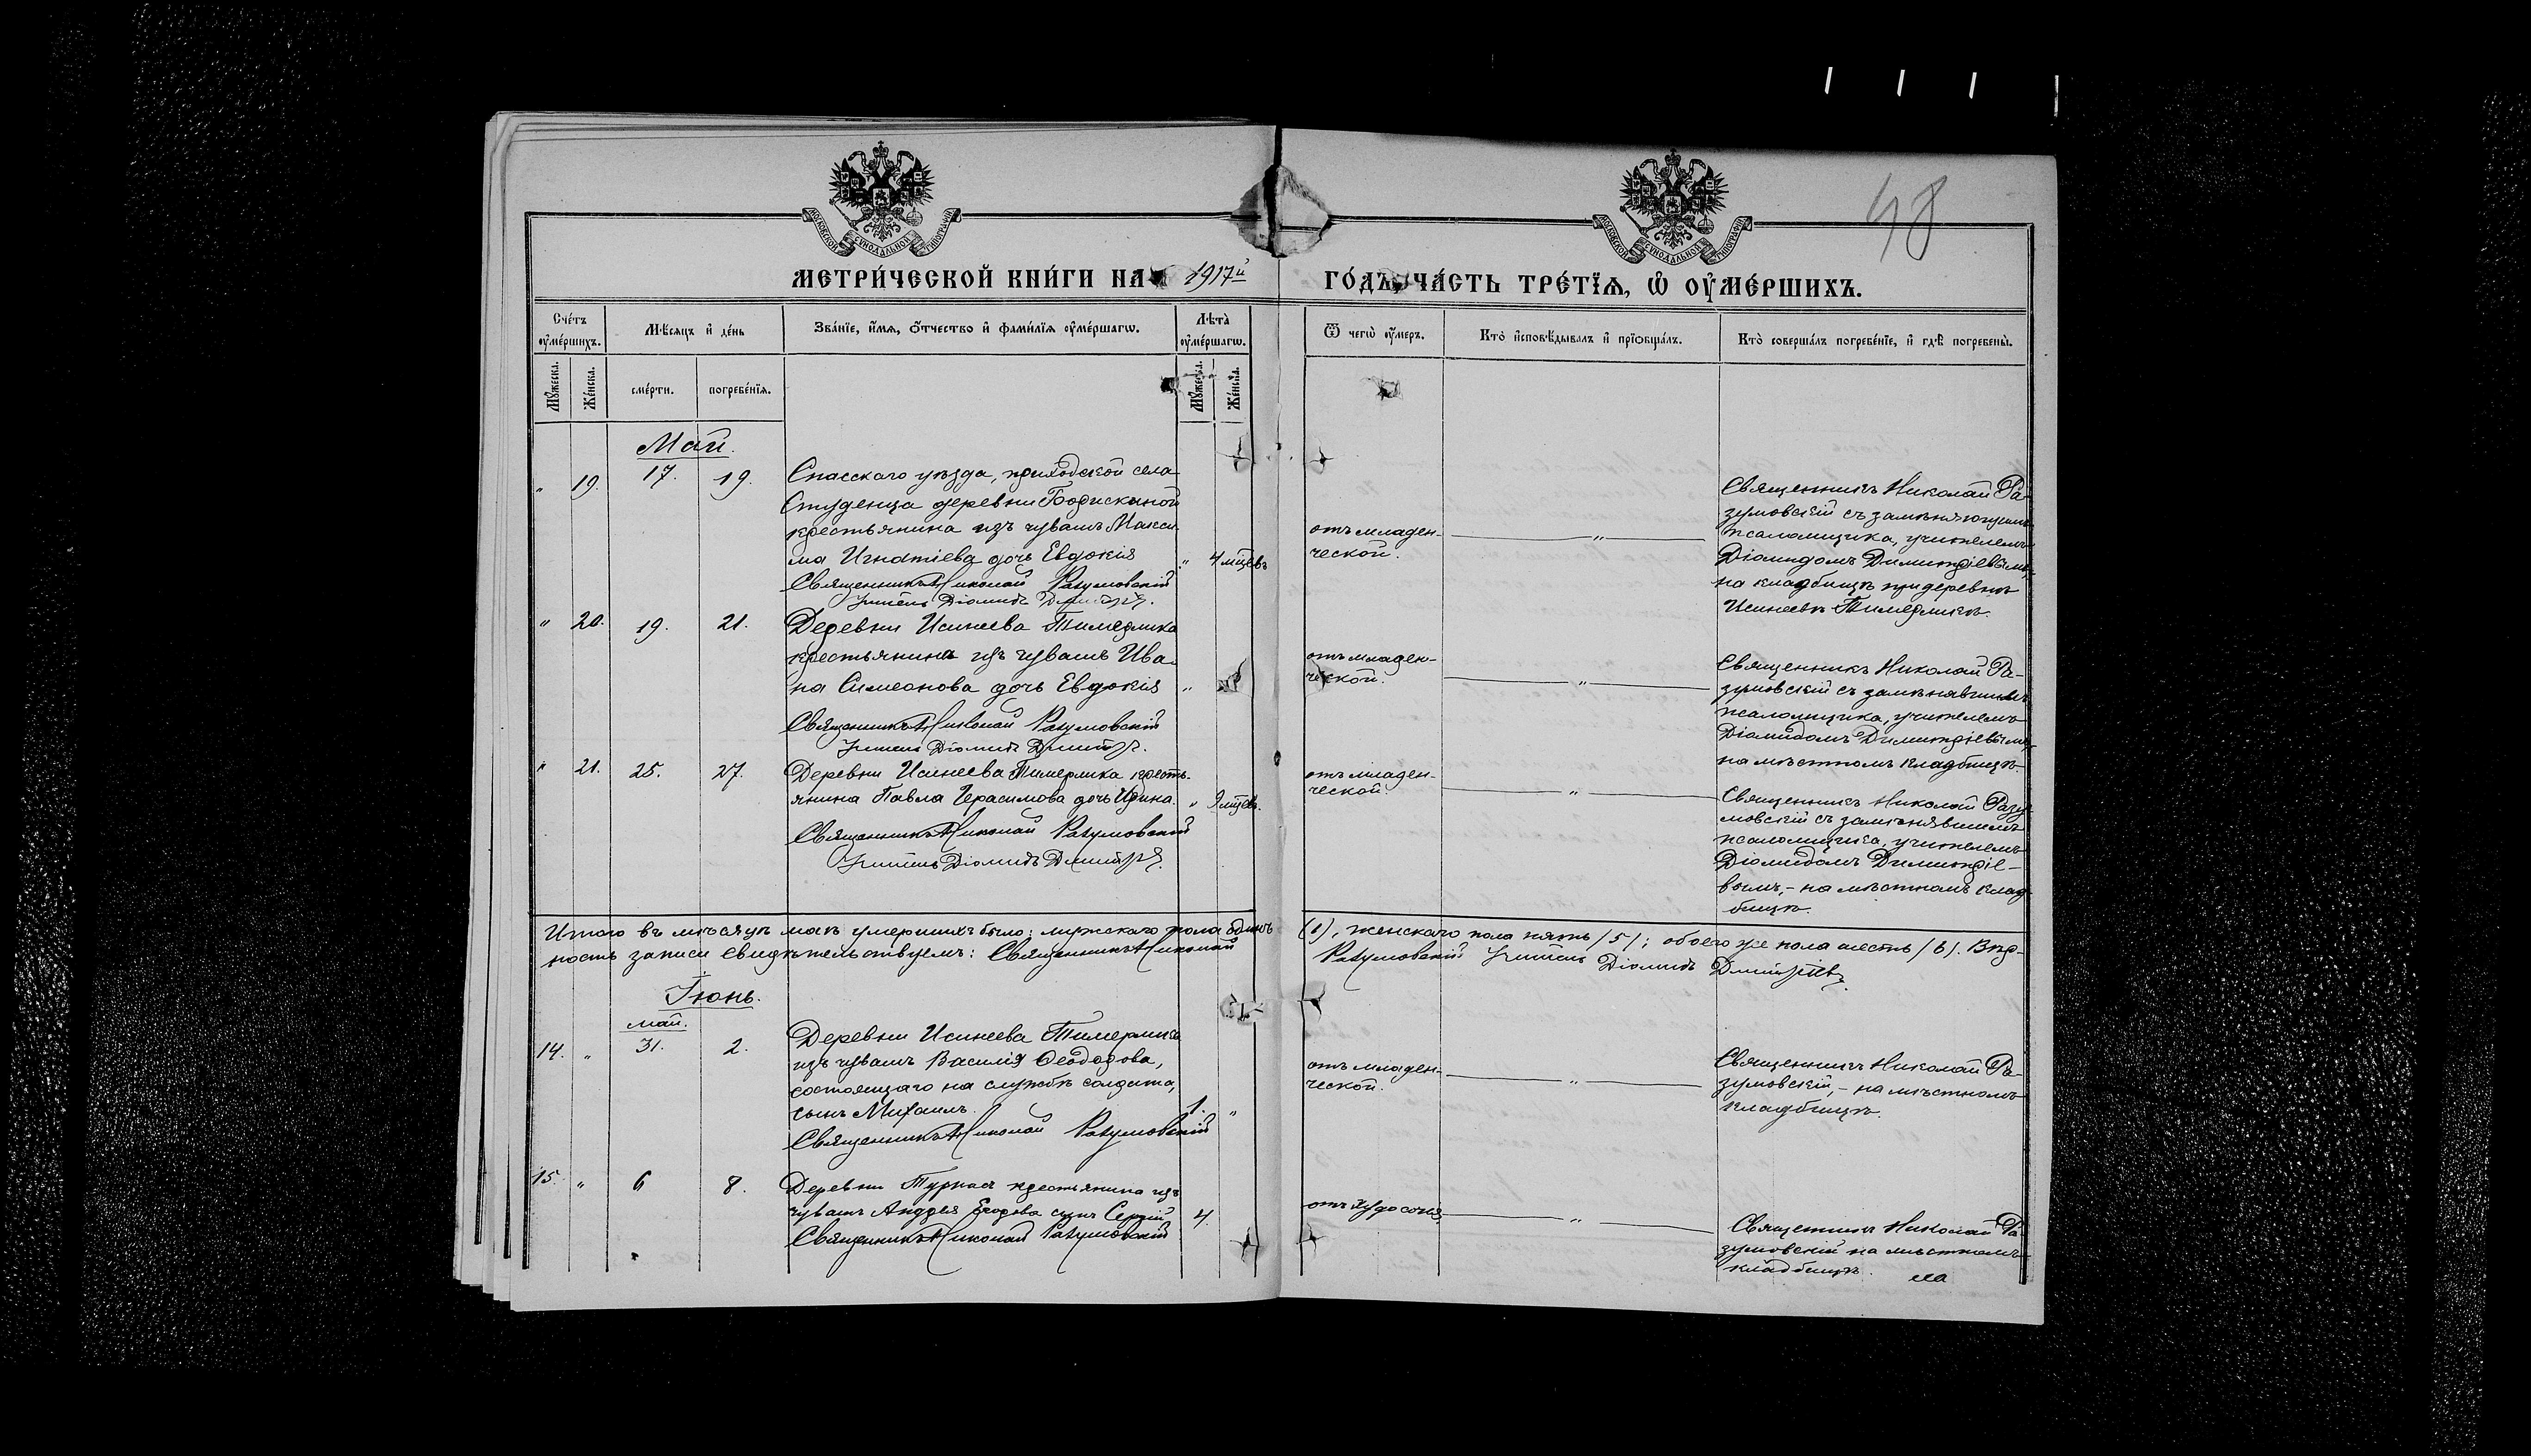 48
МОСКОВСКОЙ СѴНОДАЛЬНОЙ ТИПОГРАФІИ
МОСКОВСКОЙ СѴНОДАЛЬНОЙ ТИПОГРАФІИ
МЕТРИ́ЧЕСКОЙ КНИ́ГИ НА 1917й ГО́ДЪ, ЧА́СТЬ ТРЕ́ТЇѦ, Ѡ҆ ОУ҆МЕ́РШИХЪ.
Сче́тъ оу҆ме́ршихъ.
Мѣ́сяцъ и҆ де́нь
Зва́нїе, и҆́мѧ, ѻ҆́тчество и҆ фами́лїѧ оу҆ме́ршагѡ.
Лѣта̀ оу҆ме́ршагѡ.
Ѿ чегѡ̀ оу҆́меръ.
Кто̀ и҆сповѣ́дывалъ и҆ прїѡбща́лъ.
Кто̀ соверша́лъ погребе́нїе, и҆ гдѣ̀ погребены̀.
Мꙋ́жеска.
Же́нска.
сме́рти.
погребе́нїѧ.
Мꙋ́жеска.
Же́нска.
Май.
" 19. 17. 19.
Спасскаго уѣзда, приходской села
Студенца деревни
крестьянина изъ чувашъ Макси-
ма Игнатіева дочь Евдокія
" 4 мцевъ
Священникъ Николай Разумовскій
Учитель Діомидъ
отъ младен-
ческой.
"
Священникъ Николай Ра-
зумовскій съ замѣняющимъ
псаломщика, учителемъ
Діомидомъ Димитріевымъ,
на кладбищѣ при деревнѣ
Исинеевѣ Тимерликѣ.
" 20. 19. 21.
Деревни Исинеева Тимерлика
крестьянина изъ чувашъ Ива-
на Симеонова дочь Евдокія "
Священникъ Николай Разумовскій
Учитель Діомидъ
отъ младен-
ческой.
"
Священникъ Николай Ра-
зумовскій съ замѣнявшимъ
псаломщика, учителемъ
Діомидомъ Димитріевымъ,
на мѣстномъ кладбищѣ.
" 21. 25. 27.
Деревни Исинеева Тимерлика кресть-
янина Павла Герасимова дочь Ирина. "
Священникъ Николай Разумовскій
Учитель Діомидъ
отъ младен-
ческой.
"
Священникъ Николай Разу-
мовскій съ замѣнявшимъ
псаломщика, учителемъ
Діомидомъ Димитріе-
вымъ, - на мѣстномъ клад-
бищѣ.
Итого въ мѣсяцѣ маѣ умершихъ было: мужскаго пола одинъ (1), женскаго пола пять /5/; обоего же пола шесть /6/. Вѣр-
ность записи свидѣтельствуемъ: Священникъ Николай Разумовскій Учитель Діомидъ
Іюнь.
май.
14. " 31. 2.
Деревни Исинеева Тимерлика
изъ чувашъ Василія Ѳеодорова,
состоящаго на службѣ солдата,
сынъ Михаилъ. 1. "
Священникъ Николай Разумовскій
отъ младен-
ческой.
"
Священникъ Николай Ра-
зумовскій, - на мѣстномъ
кладбищѣ.
15. " 6 8.
Деревни Турнасъ крестьянина изъ
чувашъ Андрея Егорова сынъ Сергій 4.
Священникъ Николай Разумовскій
отъ худосочія
"
Священникъ Николай Ра-
зумовскій на мѣстномъ
кладбищѣ.